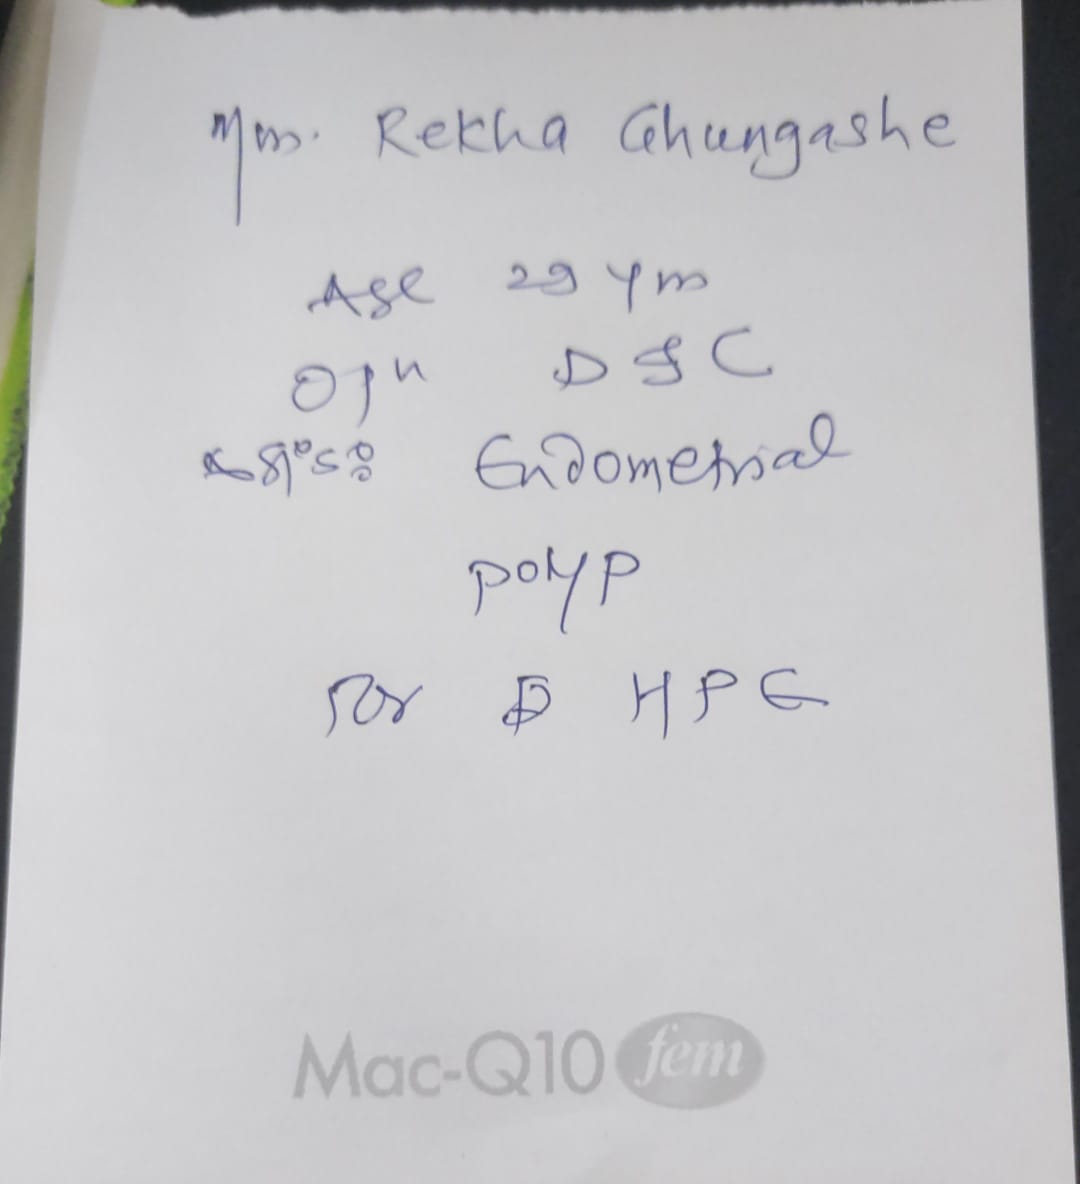 Mrs. Rekha Ghungashe
Age 29 Yrs
Opn D & C
Endometrial
polyp
For HPE
Mac-Q10 fem